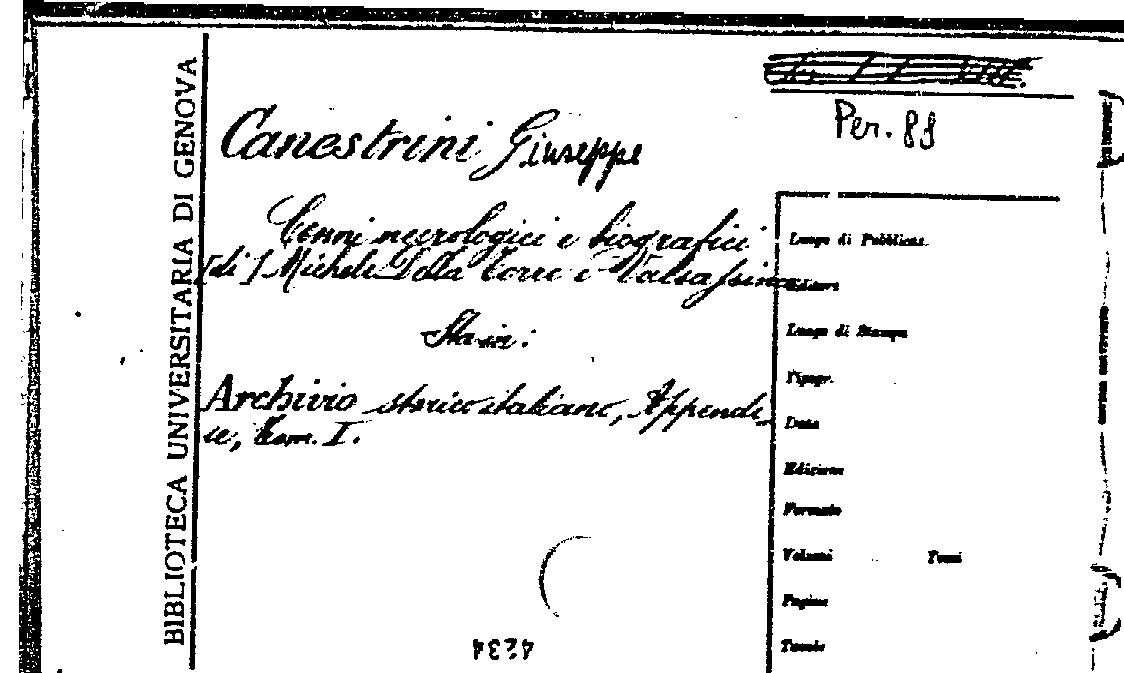 BIBLIOTECA UNIVERSITARIA DI GENOVA
Per. 88
Canestrini Giuseppe
Cenni necrologici e biografici
[di] Michele Della Torre e Valsassina
Sta in:
Archivio storico italiano, Appendi-
ce, Tom. I.
Luogo di Pubblicaz.
Editore
Luogo di Stampa
Tipogr.
Data
Edizione
Formato
Volumi Tomi
Pagine
Tavole
4234